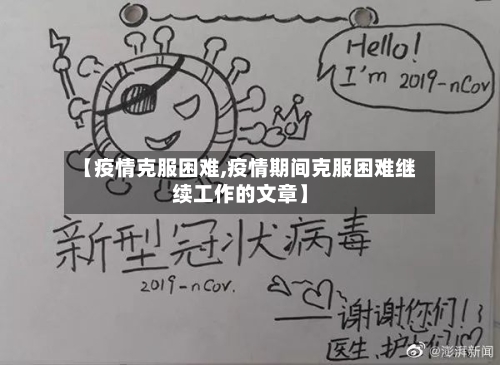 Hello!
I'm 2019-nCoV
【疫情克服困难,疫情期间克服困难继
续工作的文章】
新型冠状病毒
2019-nCoV.
谢谢你们!
医生、护士们
@澎湃新闻